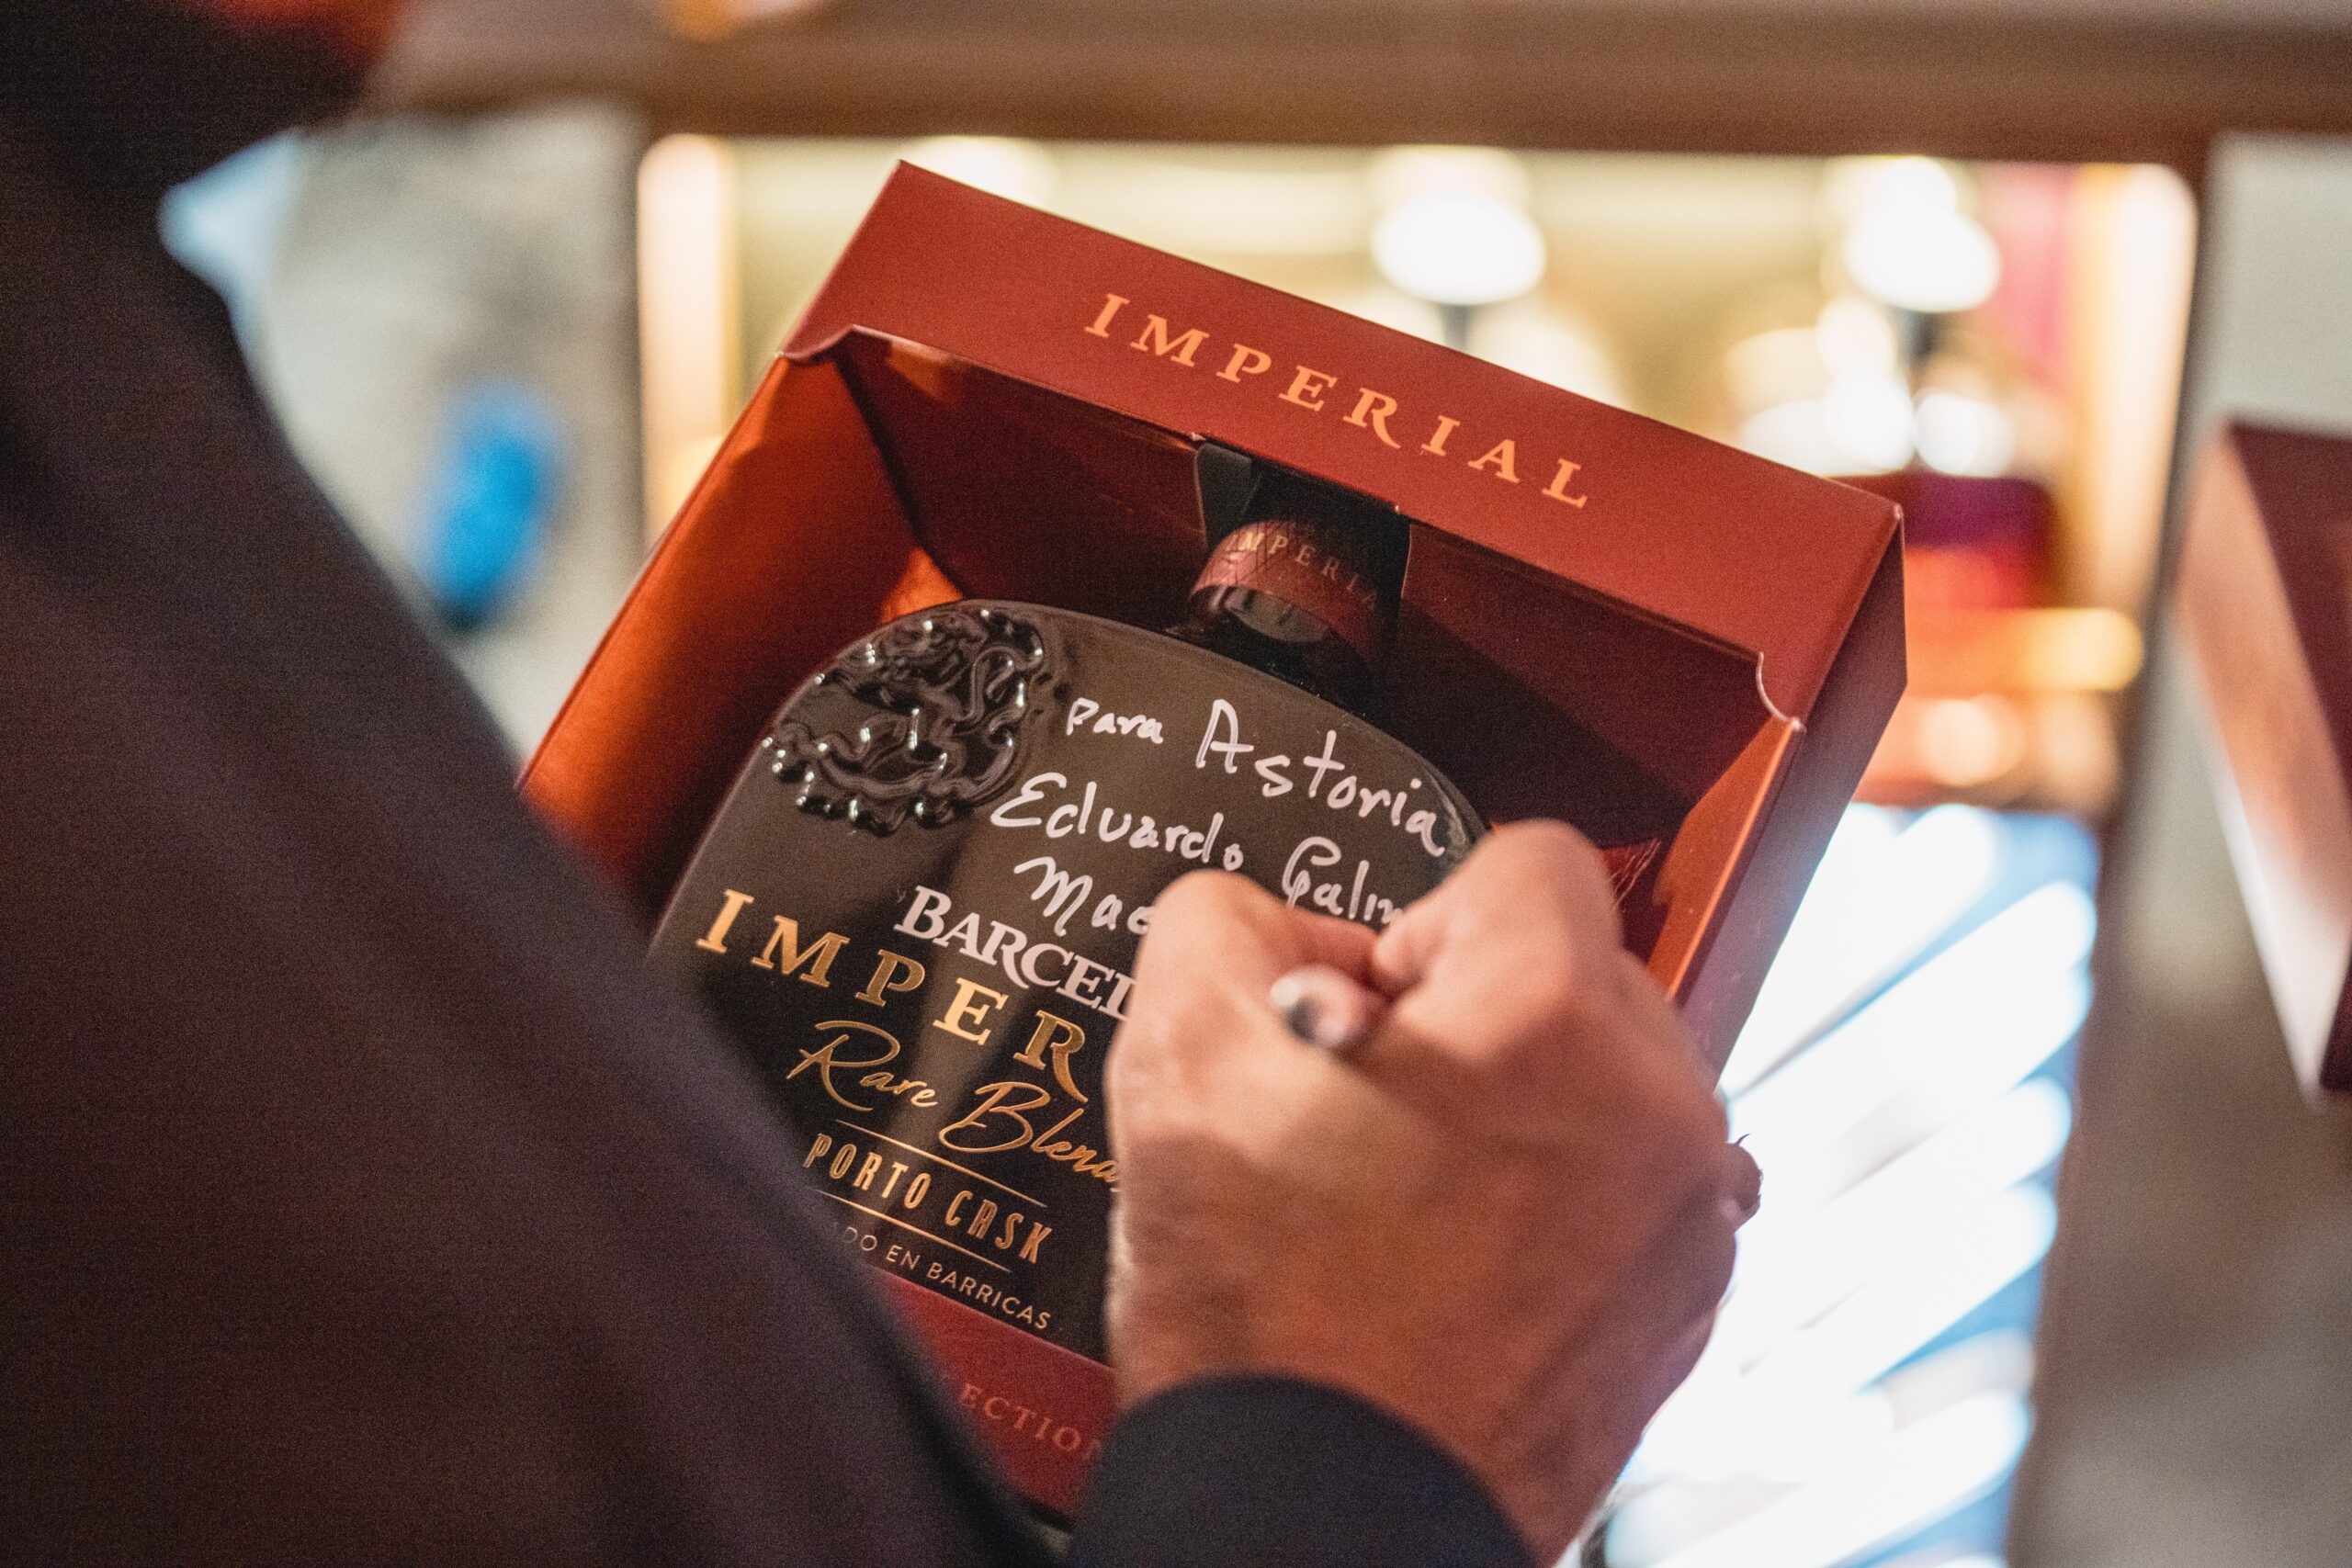 IMPERIAL
IMPERIA
para Astoria
Eduardo
BARCEL
IMPER
Rare Blend
PORTO CASK
DO EN BARRICAS
ECTION